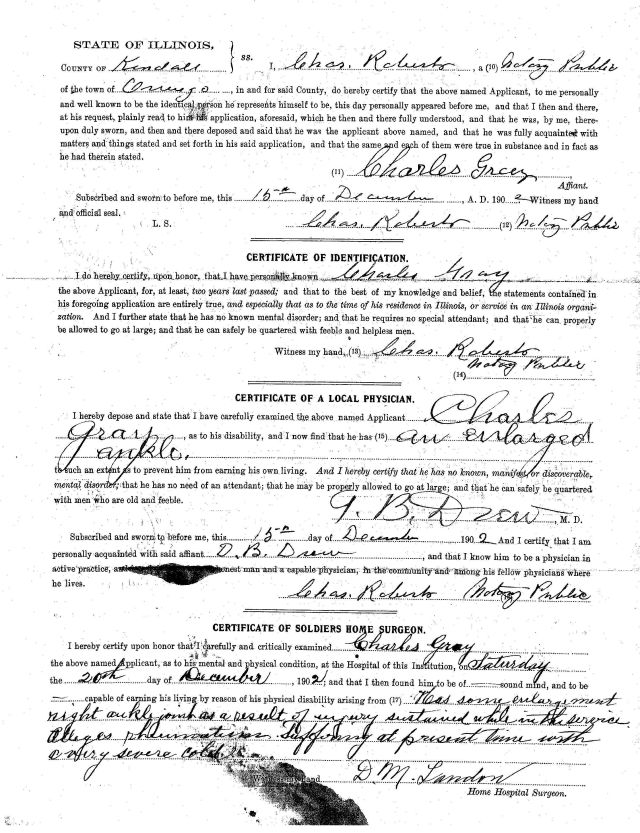 STATE OF ILLINOIS,
COUNTY OF Kendall } ss. I, Chas. Roberts, a (10) Notary Public
of the town of Oswego, in and for said County, do hereby certify that the above named Applicant, to me personally
and well known to be the identical person he represents himself to be, this day personally appeared before me, and that I then and there,
at his request, plainly read to him his application, aforesaid, which he then and there fully understood, and that he was, by me, there-
upon duly sworn, and then and there deposed and said that he was the applicant above named, and that he was fully acquainted with
matters and things stated and set forth in his said application, and that the same and each of them were true in substance and in fact as
he had therein stated.
(11) Charles Gray
Affiant.
Subscribed and sworn to before me, this 15th day of December, A. D. 1902 Witness my hand
and official seal.
L. S. Chas. Roberts (12) Notary Public
CERTIFICATE OF IDENTIFICATION.
I do hereby certify, upon honor, that I have personally known Charles Gray,
the above Applicant, for, at least, two years last passed; and that to the best of my knowledge and belief, the statements contained in
his foregoing application are entirely true, and especially that as to the time of his residence in Illinois, or service in an Illinois organi-
zation. And I further state that he has no known mental disorder; and that he requires no special attendant; and that he can properly
be allowed to go at large; and that he can safely be quartered with feeble and helpless men.
Witness my hand, (13) Chas. Roberts
(14) Notary Public
CERTIFICATE OF A LOCAL PHYSICIAN.
I hereby depose and state that I have carefully examined the above named Applicant Charles
Gray, as to his disability, and I now find that he has (15) an enlarged
ankle.
to such an extent as to prevent him from earning his own living. And I hereby certify that he has no known, manifest or discoverable,
mental disorder; that he has no need of an attendant; that he may be properly allowed to go at large; and that he can safely be quartered
with men who are old and feeble.
T. B. Drew, M. D.
Subscribed and sworn to before me, this 15th day of December 1902 And I certify that I am
personally acquainted with said affiant D. B. Drew, and that I know him to be a physician in
active practice, honest man and a capable physician, in the community and among his fellow physicians where
he lives.
Chas. Roberts Notary Public
CERTIFICATE OF SOLDIERS HOME SURGEON.
I hereby certify upon honor that I carefully and critically examined Charles Gray
the above named Applicant, as to his mental and physical condition, at the Hospital of this Institution, on Saturday
the 20th day of December, 1902; and that I then found him to be of sound mind, and to be
capable of earning his living by reason of his physical disability arising from (17) Has some enlargement
right ankle joint as a result of injury sustained while in the service
Alleges rheumatism. Suffering at present time with
a very severe cold.
Witness my hand D. M. Landon
Home Hospital Surgeon.